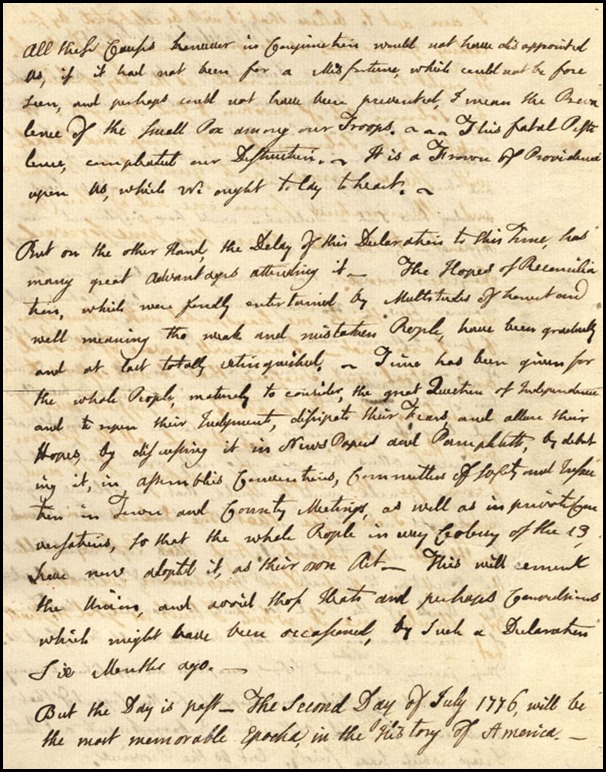 All these Causes however in Conjunction would not have disappointed
Us, if it had not been for a Misfortune, which could not be fore
seen, and perhaps could not have been prevented, I mean the Preva
lence of the Small Pox among our Troops. This fatal Pesti
lence, compleated our Destruction. It is a Frown of Providence
upon Us, which We ought to lay to heart.
But on the other Hand, the Delay of this Declaration to this Time, has
many great Advantages attending it — The Hopes of Reconcilia
tion, which were fondly entertained by Multitudes of honest and
well meaning tho weak and mistaken People, have been gradually
and at last totally extinguished. Time has been given for
the whole People, maturely to consider, the great Question of Independence
and to ripen their Judgment, dissipate their Fears, and allure their
Hopes, by discussing it in News Papers and Pamphletts, by debat
ing it, in Assemblies Conventions, Committees of Safety and Inspec
tion in Town and County Meetings, as well as in private Con
versations, so that the whole People in every Colony of the 13,
have now adopted it, as their own Act — This will cement
the Union, and avoid those Heats and perhaps Convulsions
which might have been occasioned, by Such a Declaration
Six Months ago. —
But the Day is past — The Second Day of July 1776, will be
the most memorable Epocha, in the History of America. —